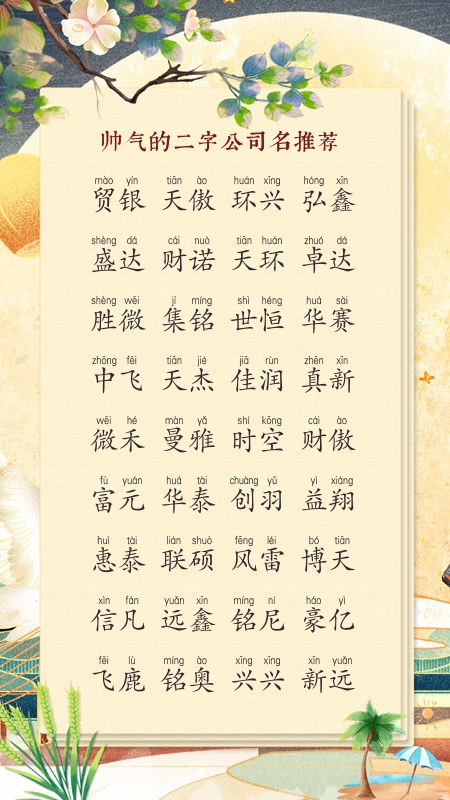 帅气的二字公司名推荐
mào yín tiān ào huán xīng hóng xīn
贸银 天傲 环兴 弘鑫
shèng dá cái nuò tiān huán zhuó dá
盛达 财诺 天环 卓达
shèng wēi jí míng shì héng huá sài
胜微 集铭 世恒 华赛
zhōng fēi tiān jié jiā rùn zhēn xīn
中飞 天杰 佳润 真新
wēi hé màn yǎ shí kōng cái ào
微禾 曼雅 时空 财傲
fù yuán huá tài chuàng yǔ yì xiáng
富元 华泰 创羽 益翔
huì tài lián shuò fēng léi bó tiān
惠泰 联硕 风雷 博天
xìn fán yuǎn xīn míng ní háo yì
信凡 远鑫 铭尼 豪亿
fēi lù míng ào xīng xīng xīn yuǎn
飞鹿 铭奥 兴兴 新远